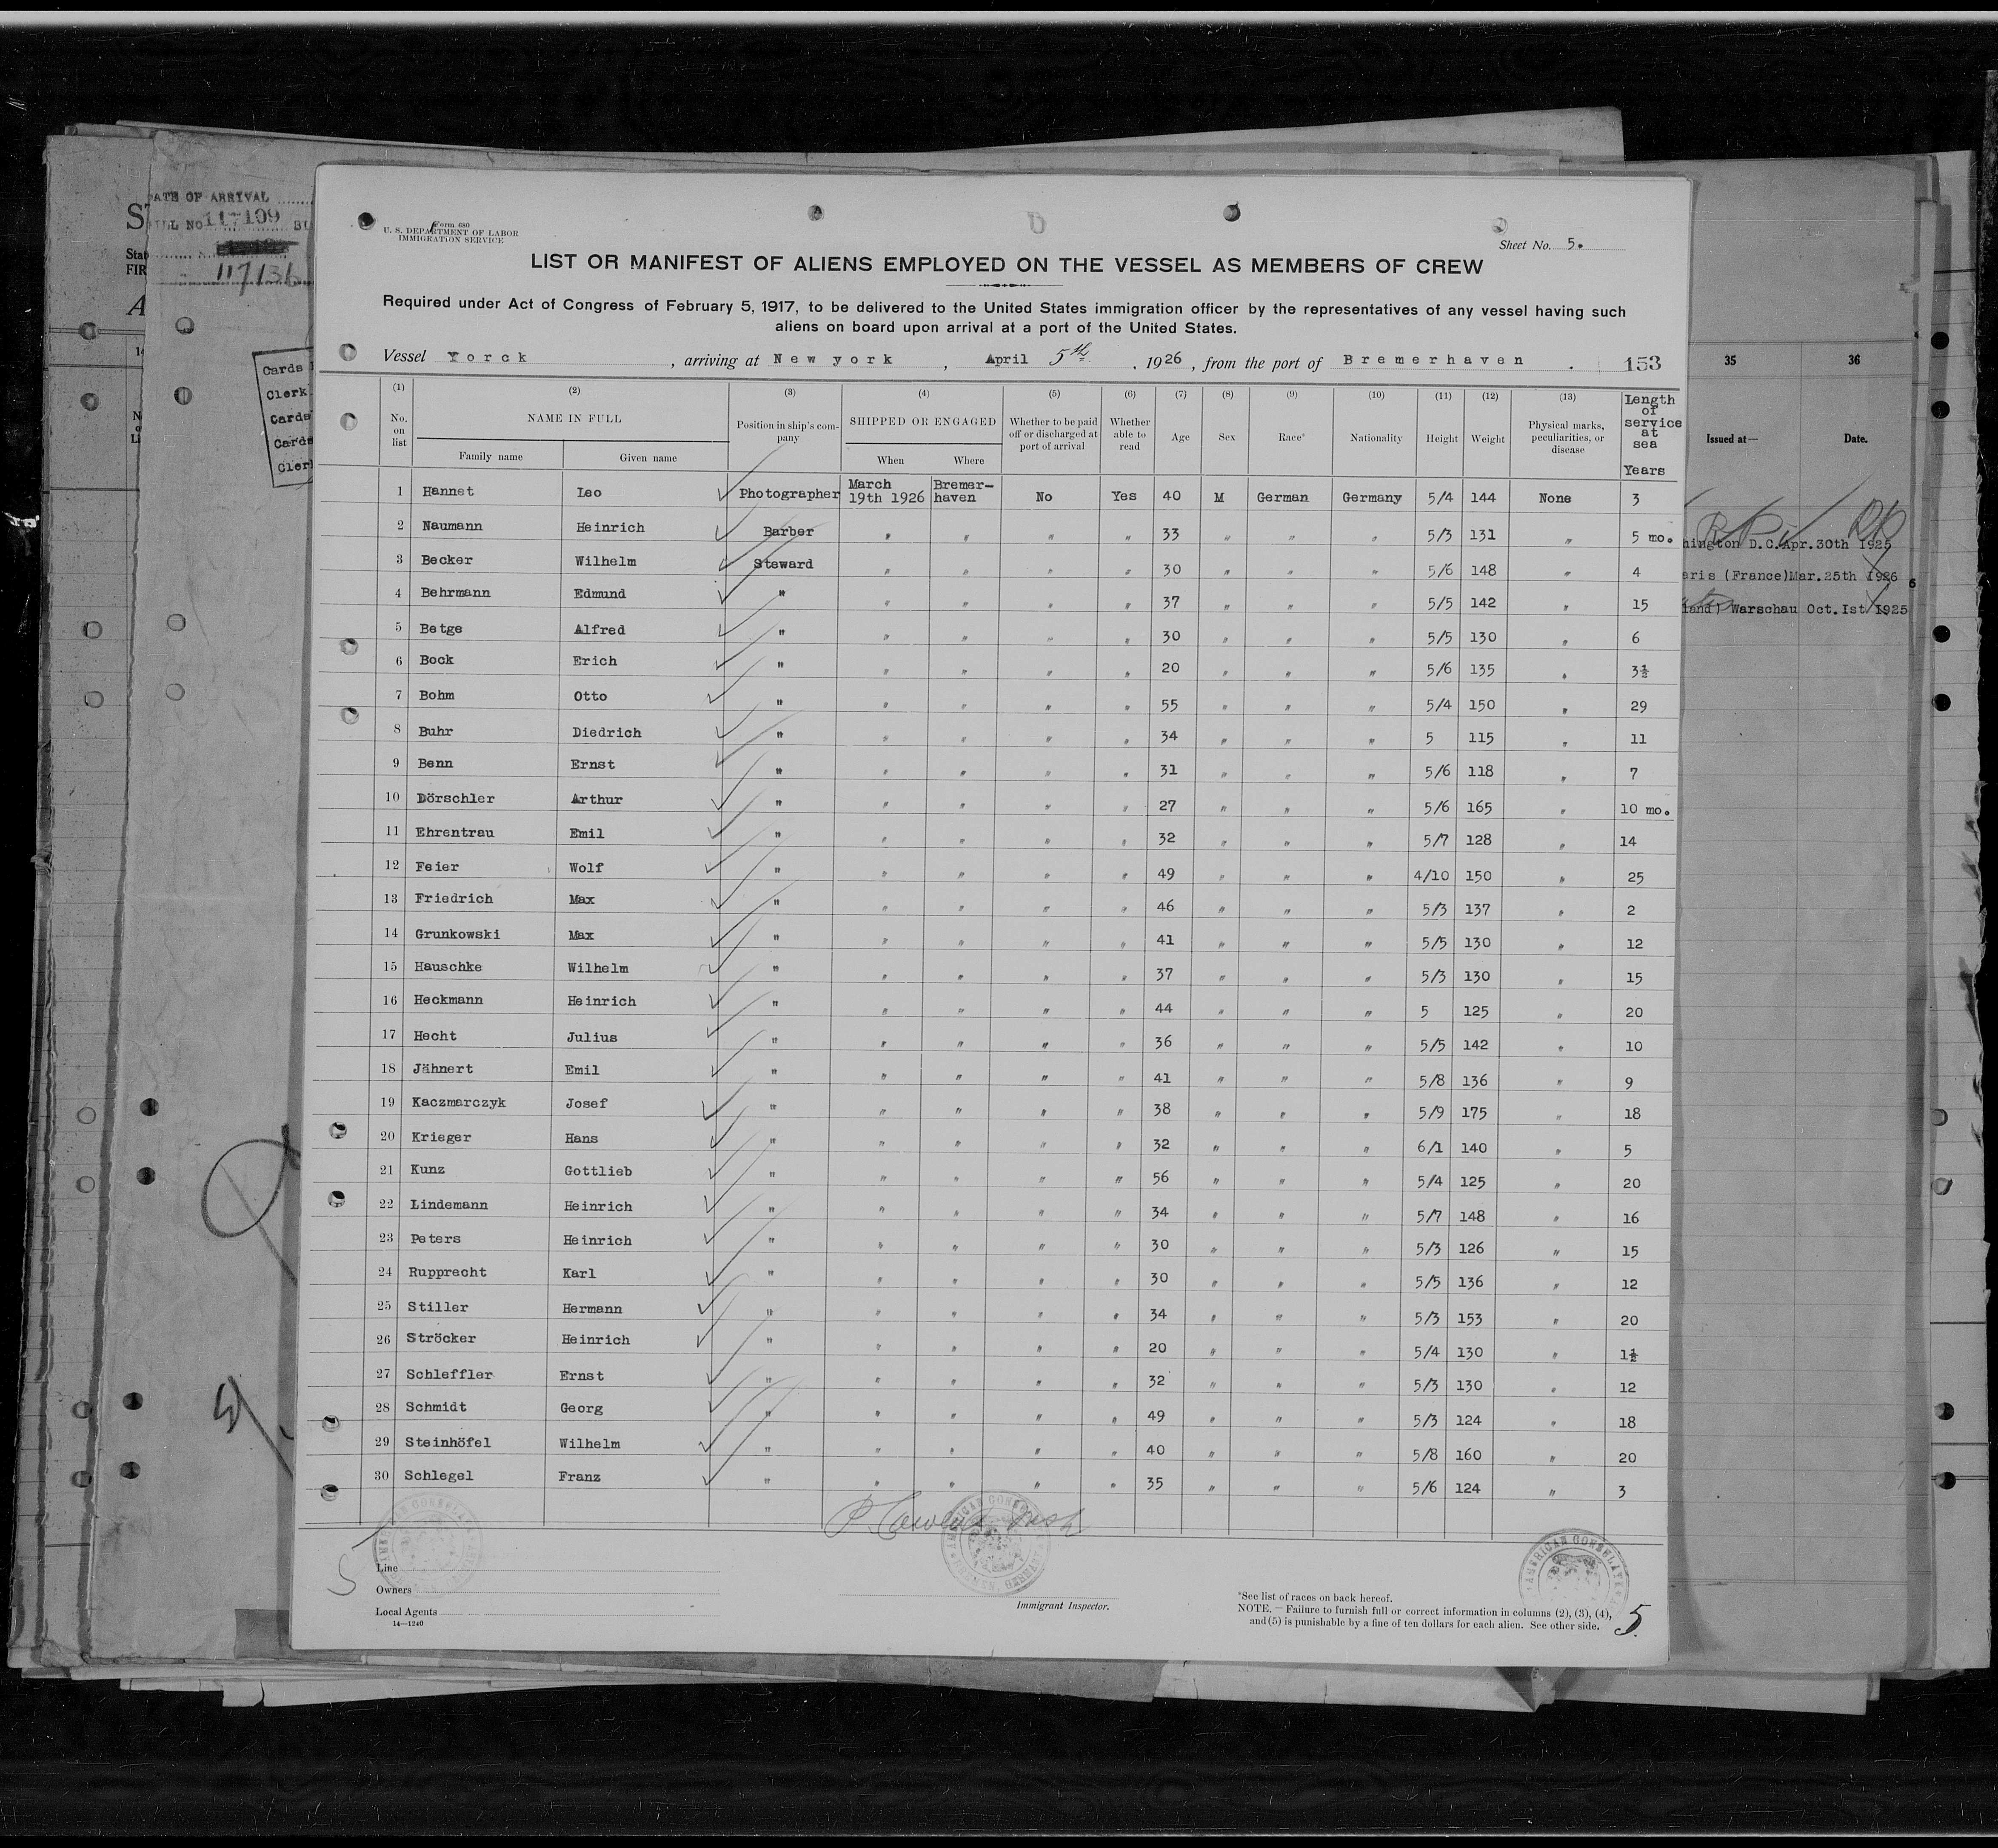 Form 680
U. S. DEPARTMENT OF LABOR
IMMIGRATION SERVICE
Sheet No. 5.
LIST OR MANIFEST OF ALIENS EMPLOYED ON THE VESSEL AS MEMBERS OF CREW
Required under Act of Congress of February 5, 1917, to be delivered to the United States immigration officer by the representatives of any vessel having such
aliens on board upon arrival at a port of the United States.
Vessel Yorck, arriving at New york, April 5th, 1926, from the port of Bremerhaven. 153
(1) (2) (3) (4) (5) (6) (7) (8) (9) (10) (11) (12) (13)
No. on list NAME IN FULL Family name Given name Position in ship's company SHIPPED OR ENGAGED When Where Whether to be paid off or discharged at port of arrival Whether able to read Age Sex Race* Nationality Height Weight Physical marks, peculiarities, or disease Length of service at sea Years
1 Hannet Leo Photographer March 19th 1926 Bremerhaven No Yes 40 M German Germany 5/4 144 None 3
2 Naumann Heinrich Barber " " " " 33 " " " 5/3 131 " 5 mo.
3 Becker Wilhelm Steward " " " " 30 " " " 5/6 148 " 4
4 Behrmann Edmund " " " " " 37 " " " 5/5 142 " 15
5 Betge Alfred " " " " " 30 " " " 5/5 130 " 6
6 Bock Erich " " " " " 20 " " " 5/6 135 " 3½
7 Bohm Otto " " " " " 55 " " " 5/4 150 " 29
8 Buhr Diedrich " " " " " 34 " " " 5 115 " 11
9 Benn Ernst " " " " " 31 " " " 5/6 118 " 7
10 Dörschler Arthur " " " " " 27 " " " 5/6 165 " 10 mo.
11 Ehrentrau Emil " " " " " 32 " " " 5/7 128 " 14
12 Feier Wolf " " " " " 49 " " " 4/10 150 " 25
13 Friedrich Max " " " " " 46 " " " 5/3 137 " 2
14 Grunkowski Max " " " " " 41 " " " 5/5 130 " 12
15 Hauschke Wilhelm " " " " " 37 " " " 5/3 130 " 15
16 Heckmann Heinrich " " " " " 44 " " " 5 125 " 20
17 Hecht Julius " " " " " 36 " " " 5/5 142 " 10
18 Jähnert Emil " " " " " 41 " " " 5/8 136 " 9
19 Kaczmarczyk Josef " " " " " 38 " " " 5/9 175 " 18
20 Krieger Hans " " " " " 32 " " " 6/1 140 " 5
21 Kunz Gottlieb " " " " " 56 " " " 5/4 125 " 20
22 Lindemann Heinrich " " " " " 34 " " " 5/7 148 " 16
23 Peters Heinrich " " " " " 30 " " " 5/3 126 " 15
24 Rupprecht Karl " " " " " 30 " " " 5/5 136 " 12
25 Stiller Hermann " " " " " 34 " " " 5/3 153 " 20
26 Ströcker Heinrich " " " " " 20 " " " 5/4 130 " 1½
27 Schleffler Ernst " " " " " 32 " " " 5/3 130 " 12
28 Schmidt Georg " " " " " 49 " " " 5/3 124 " 18
29 Steinhöfel Wilhelm " " " " " 40 " " " 5/8 160 " 20
30 Schlegel Franz " " " " " 35 " " " 5/6 124 " 3
Line
Owners
Local Agents
14—1240
Immigrant Inspector.
AMERICAN CONSULATE
*See list of races on back hereof.
NOTE. — Failure to furnish full or correct information in columns (2), (3), (4),
and (5) is punishable by a fine of ten dollars for each alien. See other side.
5
5
ATE OF ARRIVAL
117109
117136
Stat
FIR
Cards
Clerk
Cards
Cards
Cler
35 36
Issued at— Date.
hington D.C. Apr. 30th 1925
aris (France) Mar. 25th 1926 6
land) Warschau Oct. 1st 1925